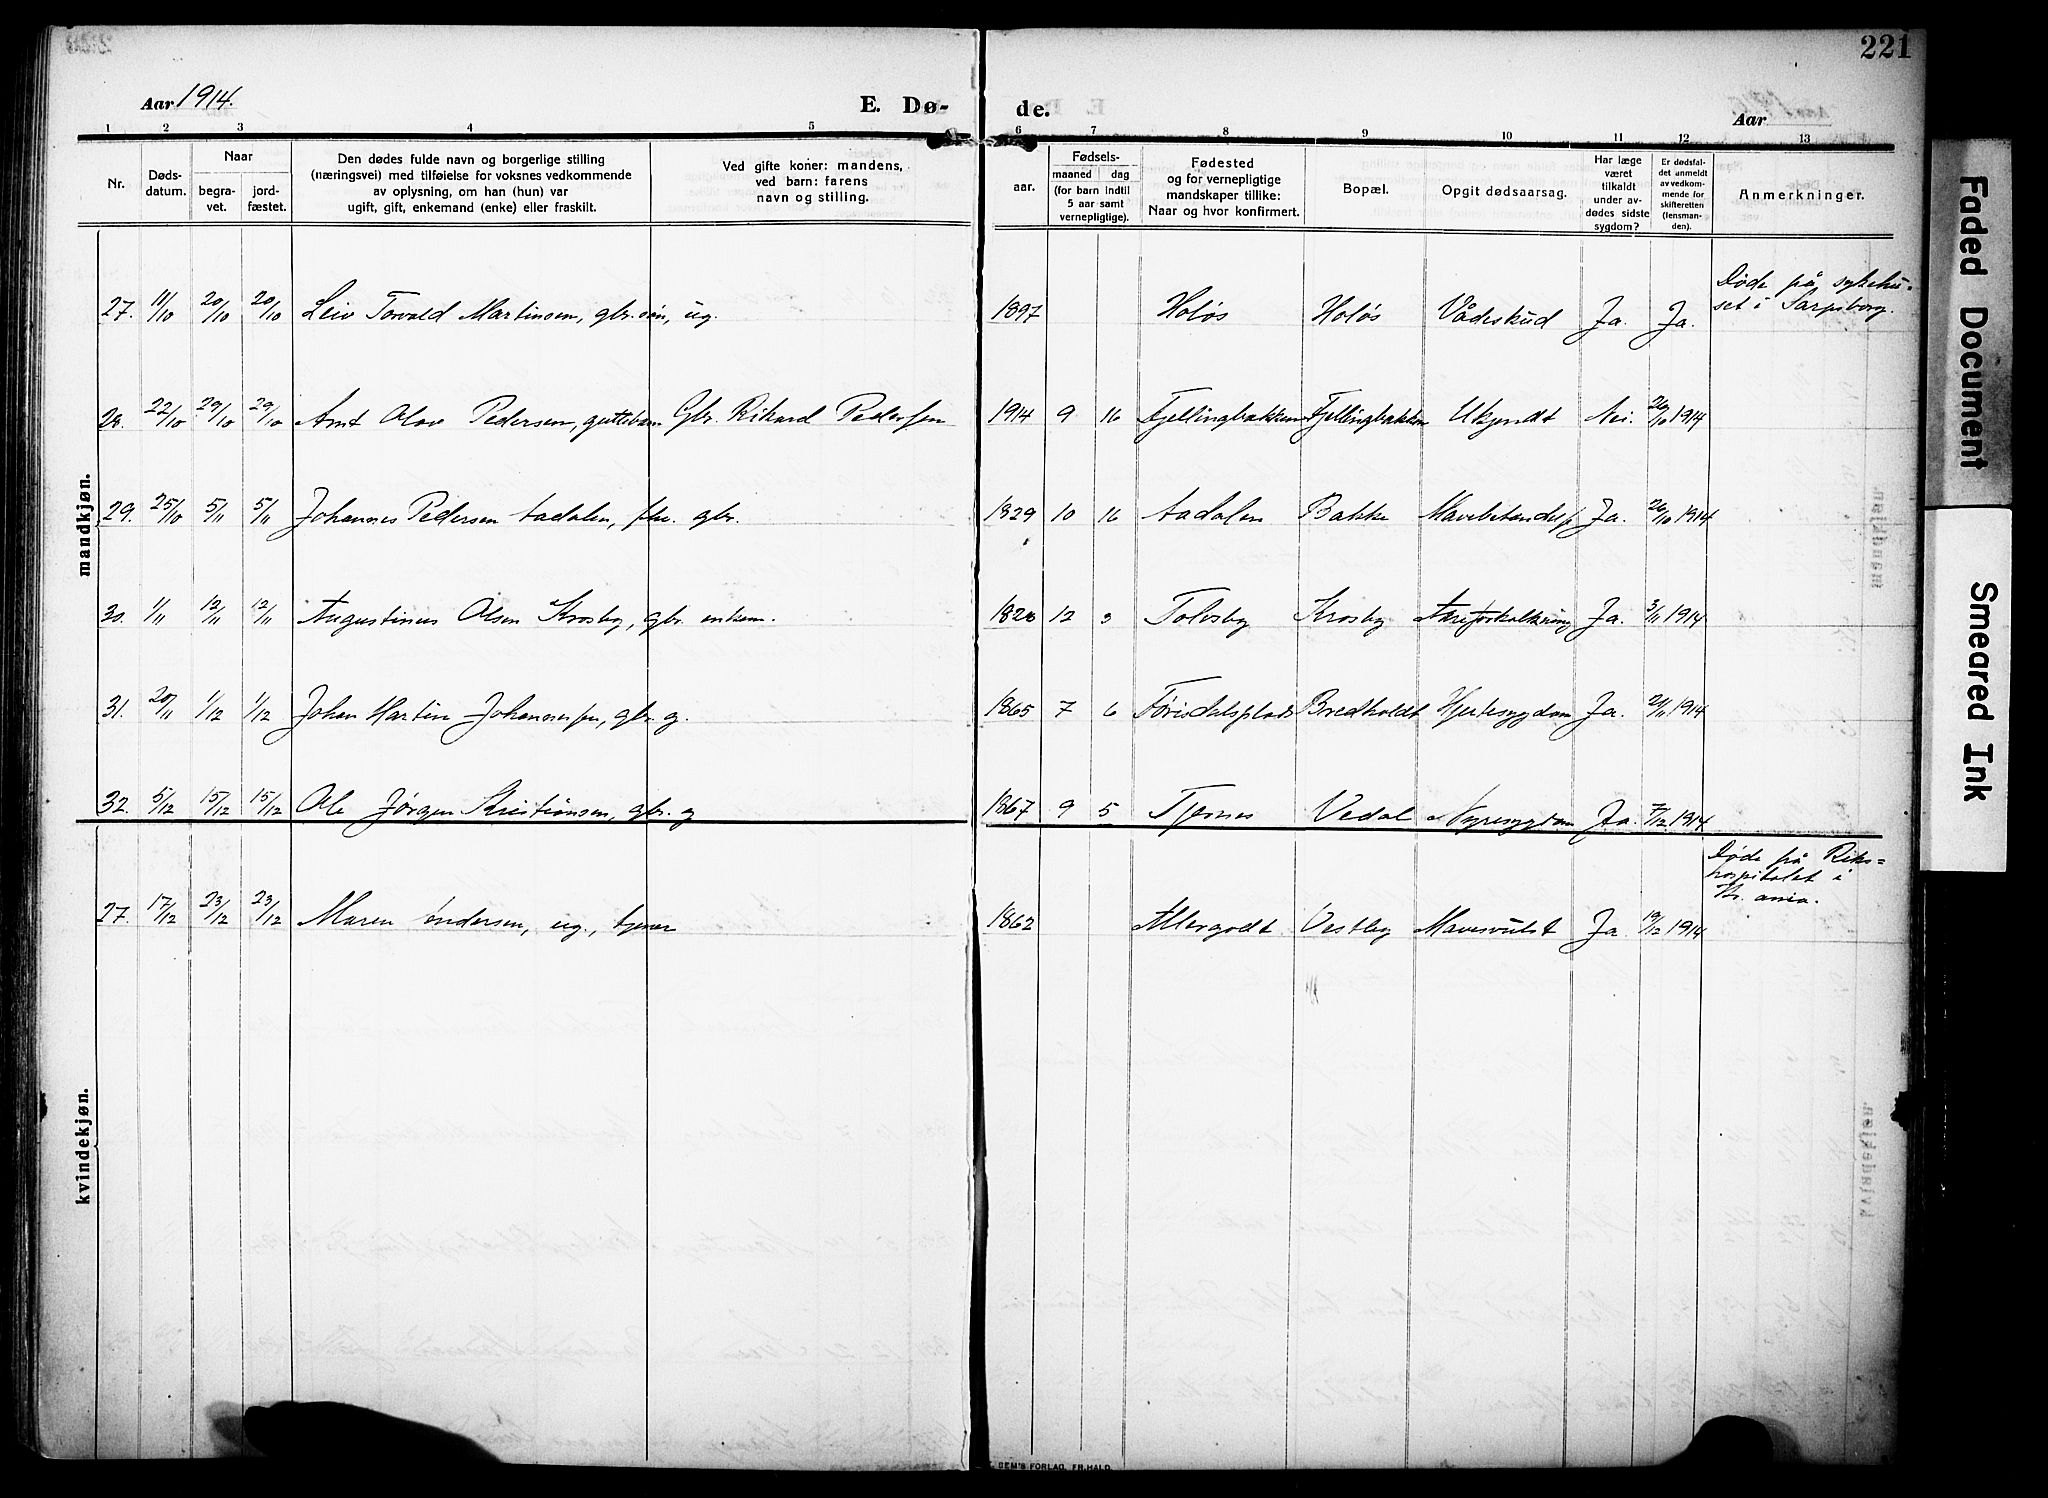 221
Aar 1914.
E. Dø-
de.
Aar
1 2 3 4 5 6 7 8 9 10 11 12 13
Nr.
Døds-
datum.
Naar
begra-
vet.
jord-
fæstet.
Den dødes fulde navn og borgerlige stilling
(næringsvei) med tilføielse for voksnes vedkommende
av oplysning, om han (hun) var
ugift, gift, enkemand (enke) eller fraskilt.
Ved gifte koner: mandens,
ved barn: farens
navn og stilling.
aar.
Fødsels-
maaned dag
(for barn indtil
5 aar samt
vernepligtige).
Fødested
og for vernepligtige
mandskaper tillike:
Naar og hvor konfirmert.
Bopæl.
Opgit dødsaarsag.
Har læge
været
tilkaldt
under av-
dødes sidste
sygdom?
Er dødsfal-
det anmeldt
av vedkom-
mende for
skifteretten
(lensman-
den).
Anmerkninger.
mandkjøn.
27. 11/10 20/10 20/10 Leiv Torvald Martinsen, gbr. søn, ug. 1897 Holøs Holøs Vådeskud Ja. Ja.
Døde på sykehu-
set i Sarpsborg.
28. 22/10 29/10 29/10 Arnt Olav Pedersen, guttebarn Gbr. Rikard Pedersen 1914 9 16 Fjellingbakken Fjellingbakken Ukjendt Nei. 26/10 1914
29. 25/10 5/11 5/11 Johannes Pedersen Aadalen, fhv. gbr. 1829 10 16 Aadalen Bakke Ja. 26/10 1914
30. 1/11 12/11 12/11 Augustinus Olsen Krosby, gbr. enkem. 1828 12 3 Tolvsby Krosby Aareforkalkning Ja. 3/11 1914
31. 20/11 1/12 1/12 Johan Martin Johannessen, gbr. g. 1865 7 6 Førisdalsplads Bredholdt Hjertesygdom Ja. 21/11 1914
32. 5/12 15/12 15/12 Ole Jørgen Kristiansen, gbr. g 1867 9 5 Tjernes Vedal Nyresygdom Ja 7/12 1914
kvindekjøn.
27. 17/12 23/12 23/12 Maren Andersen, ug., tjener 1862 Allergodt Vestby Mavesvulst Ja 19/12 1914
Døde på Riks=
hospitalet i
Kr. ania.
DEM'S FORLAG, FR.HALD
Faded Document
Smeared Ink